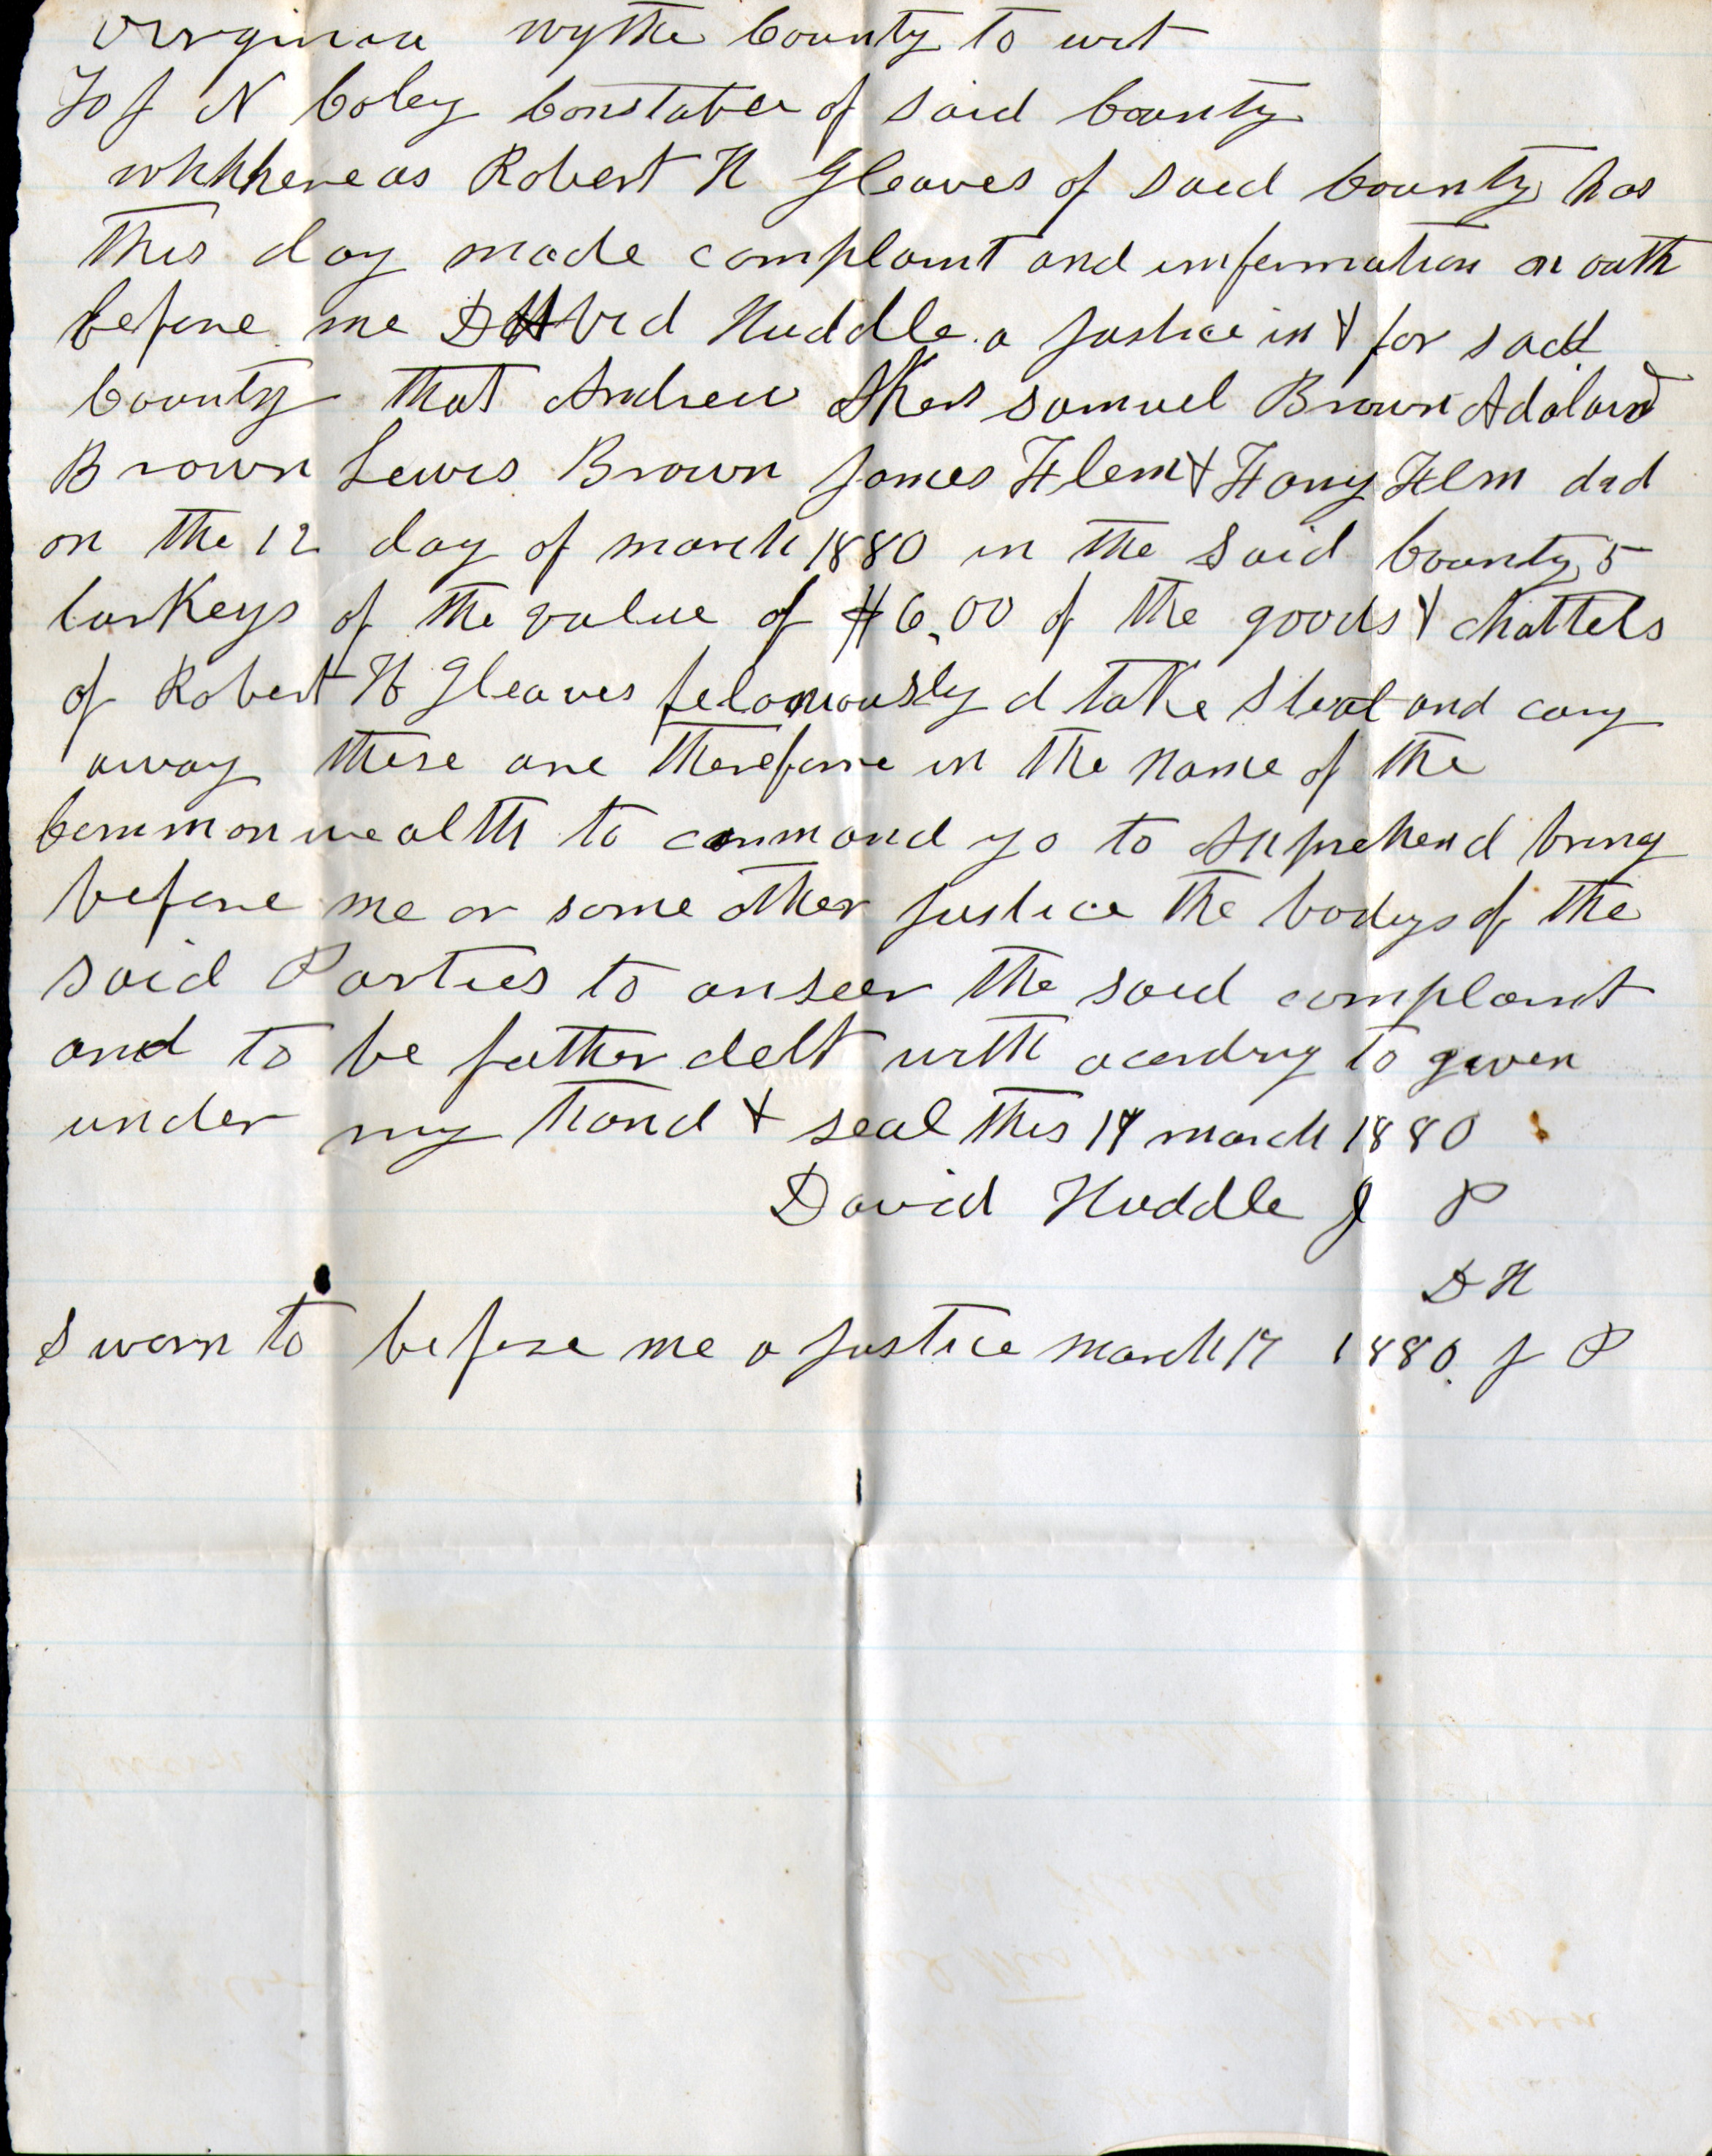 Virginia Wythe County to wit
To J N Coley Constabel of said County
whhhereas Robert H Gleaves of said County has
this day made complaint and imformation on oath
before me David Huddle a Justice in & for said
County that Andrew Akers Samuel Brown Adalaid
Brown Lewis Brown James Flem & Fany Flm did
on the 12 day of march 1880 in the said County 5
turkeys of the value of $6.00 of the goods & chattels
of Robert H Gleaves feloniously d take steal and cary
away these are therefore in the name of the
Commonwealth to command yo to apprehend bring
before me or some other Justice the bodys of the
said Parties to anseer the said complaint
and to be futher delt with acording to given
under my hand & seal this 17 march 1880
David Huddle J P
D H
Sworn to before me a Justice march 17 1880. J P